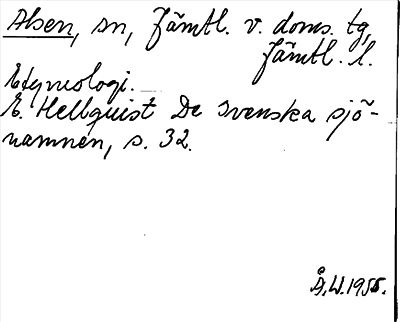 Alsen, sn, Jämtl. v. doms. tg,
Jämtl. l.
Etymologi.
E. Hellquist De svenska sjö-
namnen, s. 32.
Å.W.1955.